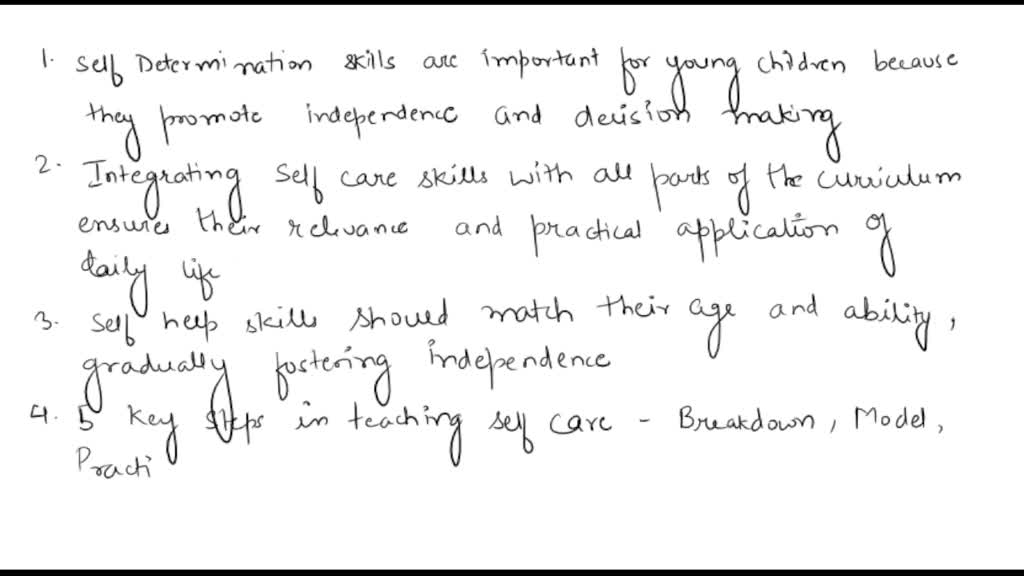 1. Self Determination skills are important for young children because
they promote independence and decision making
2. Integrating Self care skills with all parts of the curriculum
ensures their relevance and practical application of
daily life
3. Self help skills should match their age and ability,
gradually fostering independence
4. 5 Key steps in teaching self care - Breakdown, Model,
Practi